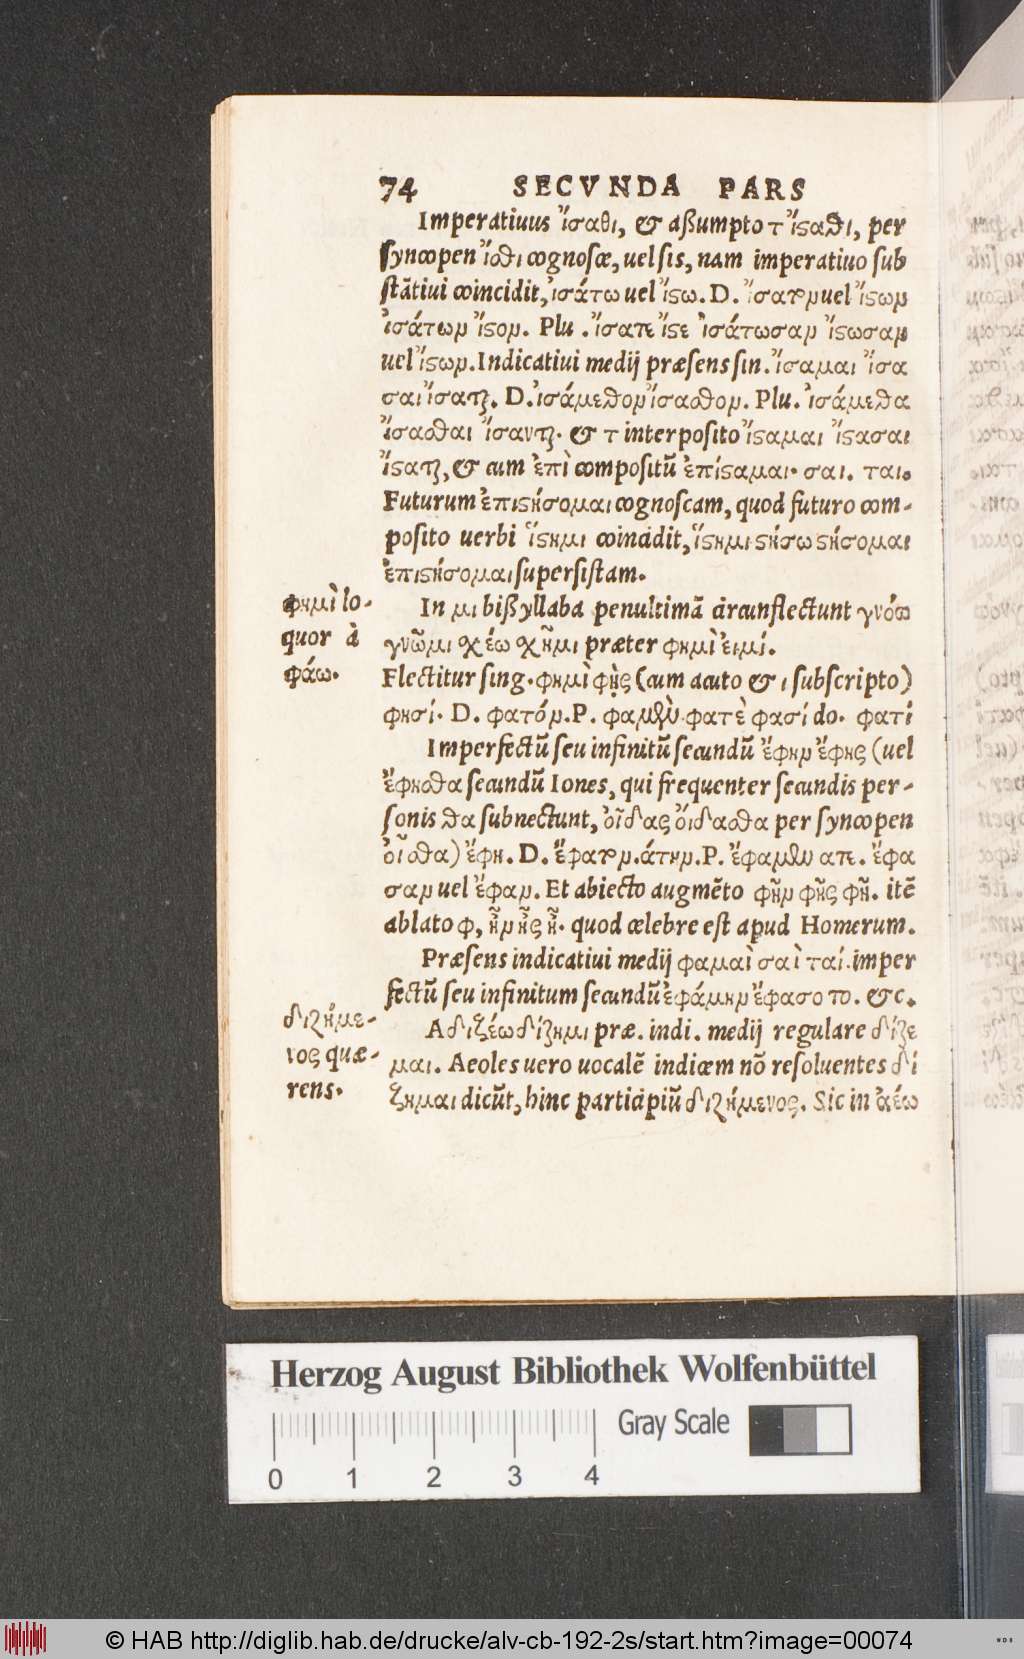 74 SECVNDA PARS
Imperatiuus ἴσαθι, & aßumpto τ ἵσταθι, per
syncopen ἴσθι cognosce, uel sis, nam imperatiuo sub
stātiui coincidit, ἰσάτω uel ἴστω. D. ἴσατον uel ἴστων
ἰσάτων ἴστον. Plu. ἴσατε ἴστε ἰσάτωσαν ἴστωσαν
uel ἴστων. Indicatiui medij præsens sin. ἴσαμαι ἴσα
σαι ἴσαται. D. ἰσάμεθον ἴσασθον. Plu. ἰσάμεθα
ἴσασθαι ἴσανται. & τ interposito ἵσταμαι ἵστασαι
ἵσταται, & cum ἐπὶ compositū ἐπίσταμαι. σαι. ται.
Futurum ἐπιστήσομαι cognoscam, quod futuro com-
posito uerbi ἵστημι coincidit, ἵστημι στήσω στήσομαι
ἐπιστήσομαι supersistam.
φημὶ lo-
quor à
φάω.
In μι bißyllaba penultimā circunflectunt γνόω
γνῶμι χέω χῆμι præter φημὶ εἰμί.
Flectitur sing. φημὶ φῄς (cum acuto & ι subscripto)
φησί. D. φατόν. P. φαμὲν φατὲ φασί do. φατί
Imperfectū seu infinitū secundū ἔφην ἔφης (uel
ἔφησθα secundū Iones, qui frequenter secundis per-
sonis θα subnectunt, οἶδας οἴδασθα per syncopen
οἶσθα) ἔφη. D. ἔφατον. άτην. P. ἔφαμεν ατε. ἔφα
σαν uel ἔφαν. Et abiecto augmēto φῆν φῆς φῆ. itē
ablato φ, ἦν ἦς ἦ. quod celebre est apud Homerum.
Præsens indicatiui medij φαμαὶ σαὶ ταί. imper
fectū seu infinitum secundū ἐφάμην ἔφασο το. &c.
διζήμε-
νος quæ-
rens.
A διζέω δίζημι præ. indi. medij regulare δίζε
μαι. Aeoles uero uocalē indicem nō resoluentes δί
ζημαι dicūt, hinc participiū διζήμενος. Sic in ἀέω
Herzog August Bibliothek Wolfenbüttel
Gray Scale
0 1 2 3 4
© HAB http://diglib.hab.de/drucke/alv-cb-192-2s/start.htm?image=00074